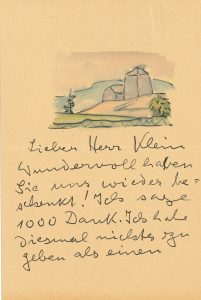 Lieber Herr Klein
Wundervoll haben
Sie uns wieder be-
schenkt! Ich sage
1000 Dank. Ich habe
diesmal nichts zu
geben als einen